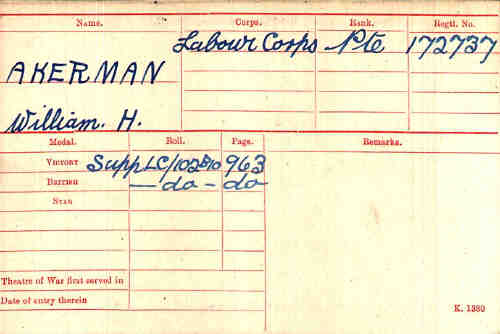 Name. Corps. Rank. Regtl. No.
Labour Corps Pte 172737
AKERMAN
William. H.
Medal. Roll. Page. Remarks.
VICTORY SuppLC/102B10 963
BRITISH — do - do
STAR
Theatre of War first served in
Date of entry therein
K. 1380